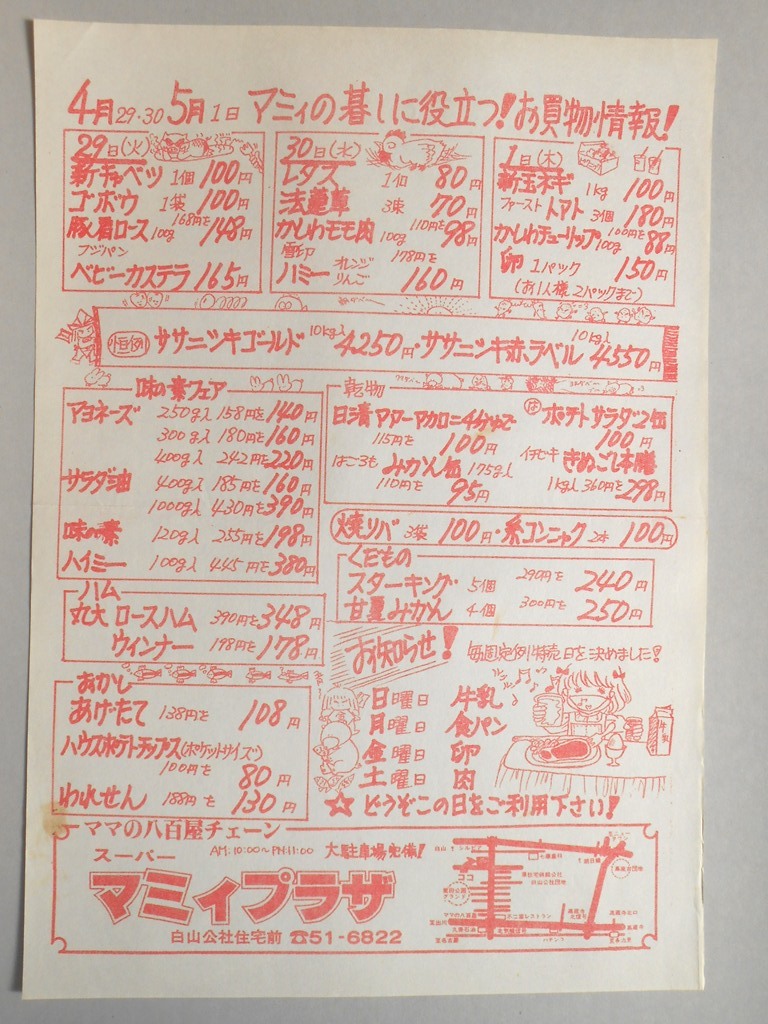 4月29・30 5月1日 マミィの暮しに役立つ!お買物情報!
29日(火)
新キャベツ 1個 100円
ゴボウ 1袋 100円
豚肩ロース 100g 168円を 148円
フジパン
ベビーカステラ 165円
30日(水)
レタス 1コ 80円
法蓮草 3束 70円
かしわモモ肉 100g 110円を 98円
雪印
ハミー オレンジ りんご 178円を 160円
1日(木)
新玉ネギ 1kg 100円
ファースト トマト 3個 180円
かしわチューリップ 100g 100円を 88円
卵 1パック 150円
(お1人様 2パックまで)
ササニシキゴールド 10kg入 4250円・ササニシキ赤ラベル 10kg入 4550円
味の素フェア
マヨネーズ 250g入 158円を 140円
300g入 180円を 160円
400g入 242円を 220円
サラダ油 400g入 185円を 160円
1000g入 430円を 390円
味の素 120g入 255円を 198円
ハイミー 100g入 445円を 380円
乾物
日清マアーマカロニ4分ゆで
115円を 100円
はごろも みかん缶 175g入
110円を 95円
は ポテトサラダ2缶
100円
イチビキ きめごし本膳
1kg入 360円を 298円
焼リバ 3袋 100円・糸コンニャク 2本 100円
くだもの
スターキング 5個 290円を 240円
甘夏みかん 4個 300円を 250円
ハム
丸大 ロースハム 390円を 348円
ウィンナー 198円を 178円
お知らせ! 毎週定例特売日を決めました!
日曜日 牛乳
月曜日 食パン
金曜日 卵
土曜日 肉
☆どうぞこの日をご利用下さい!
おかし
あげたて 138円を 108円
ハウスポテトチップス(ポケットサイズ)
100円を 80円
われせん 188円を 130円
ママの八百屋チェーン
スーパー AM:10:00～PM:11:00 大駐車場完備!
マミィプラザ
白山公社住宅前 ☎51-6822
ココ
白山公社団地